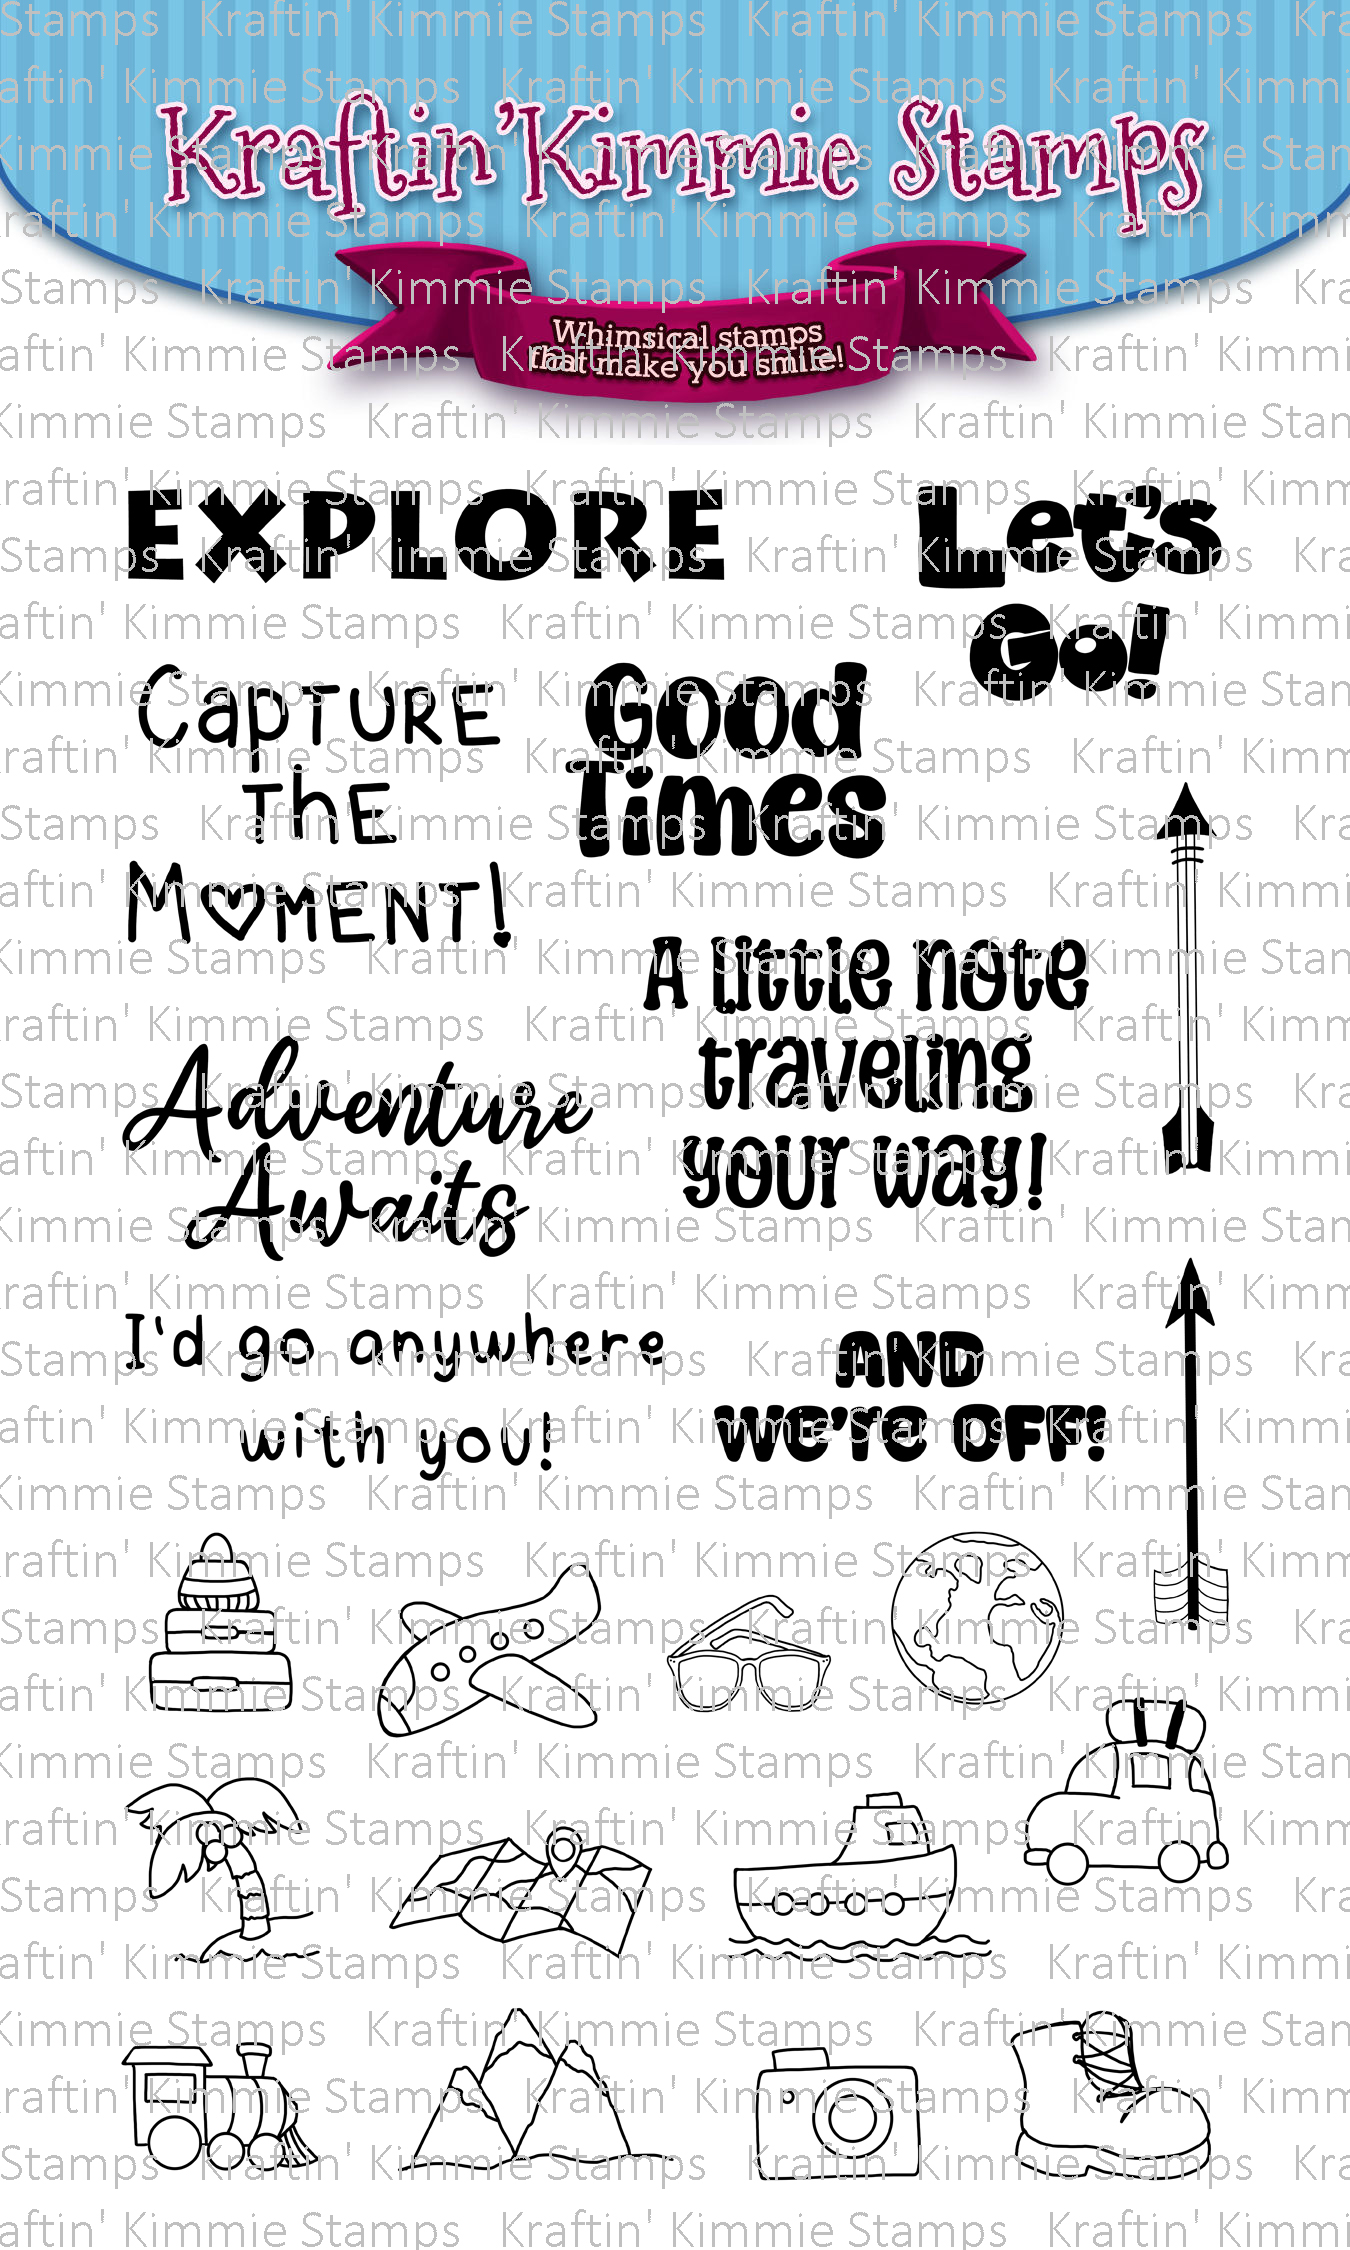 Kraftin' Kimmie Stamps
Whimsical stamps
that make you smile!
EXPLORE
Let's
Go!
CapTURE
ThE
MOMENT!
Good
Times
A little note
traveling
your way!
Adventure
Awaits
I'd go anywhere
with you!
AND
We're OFF!